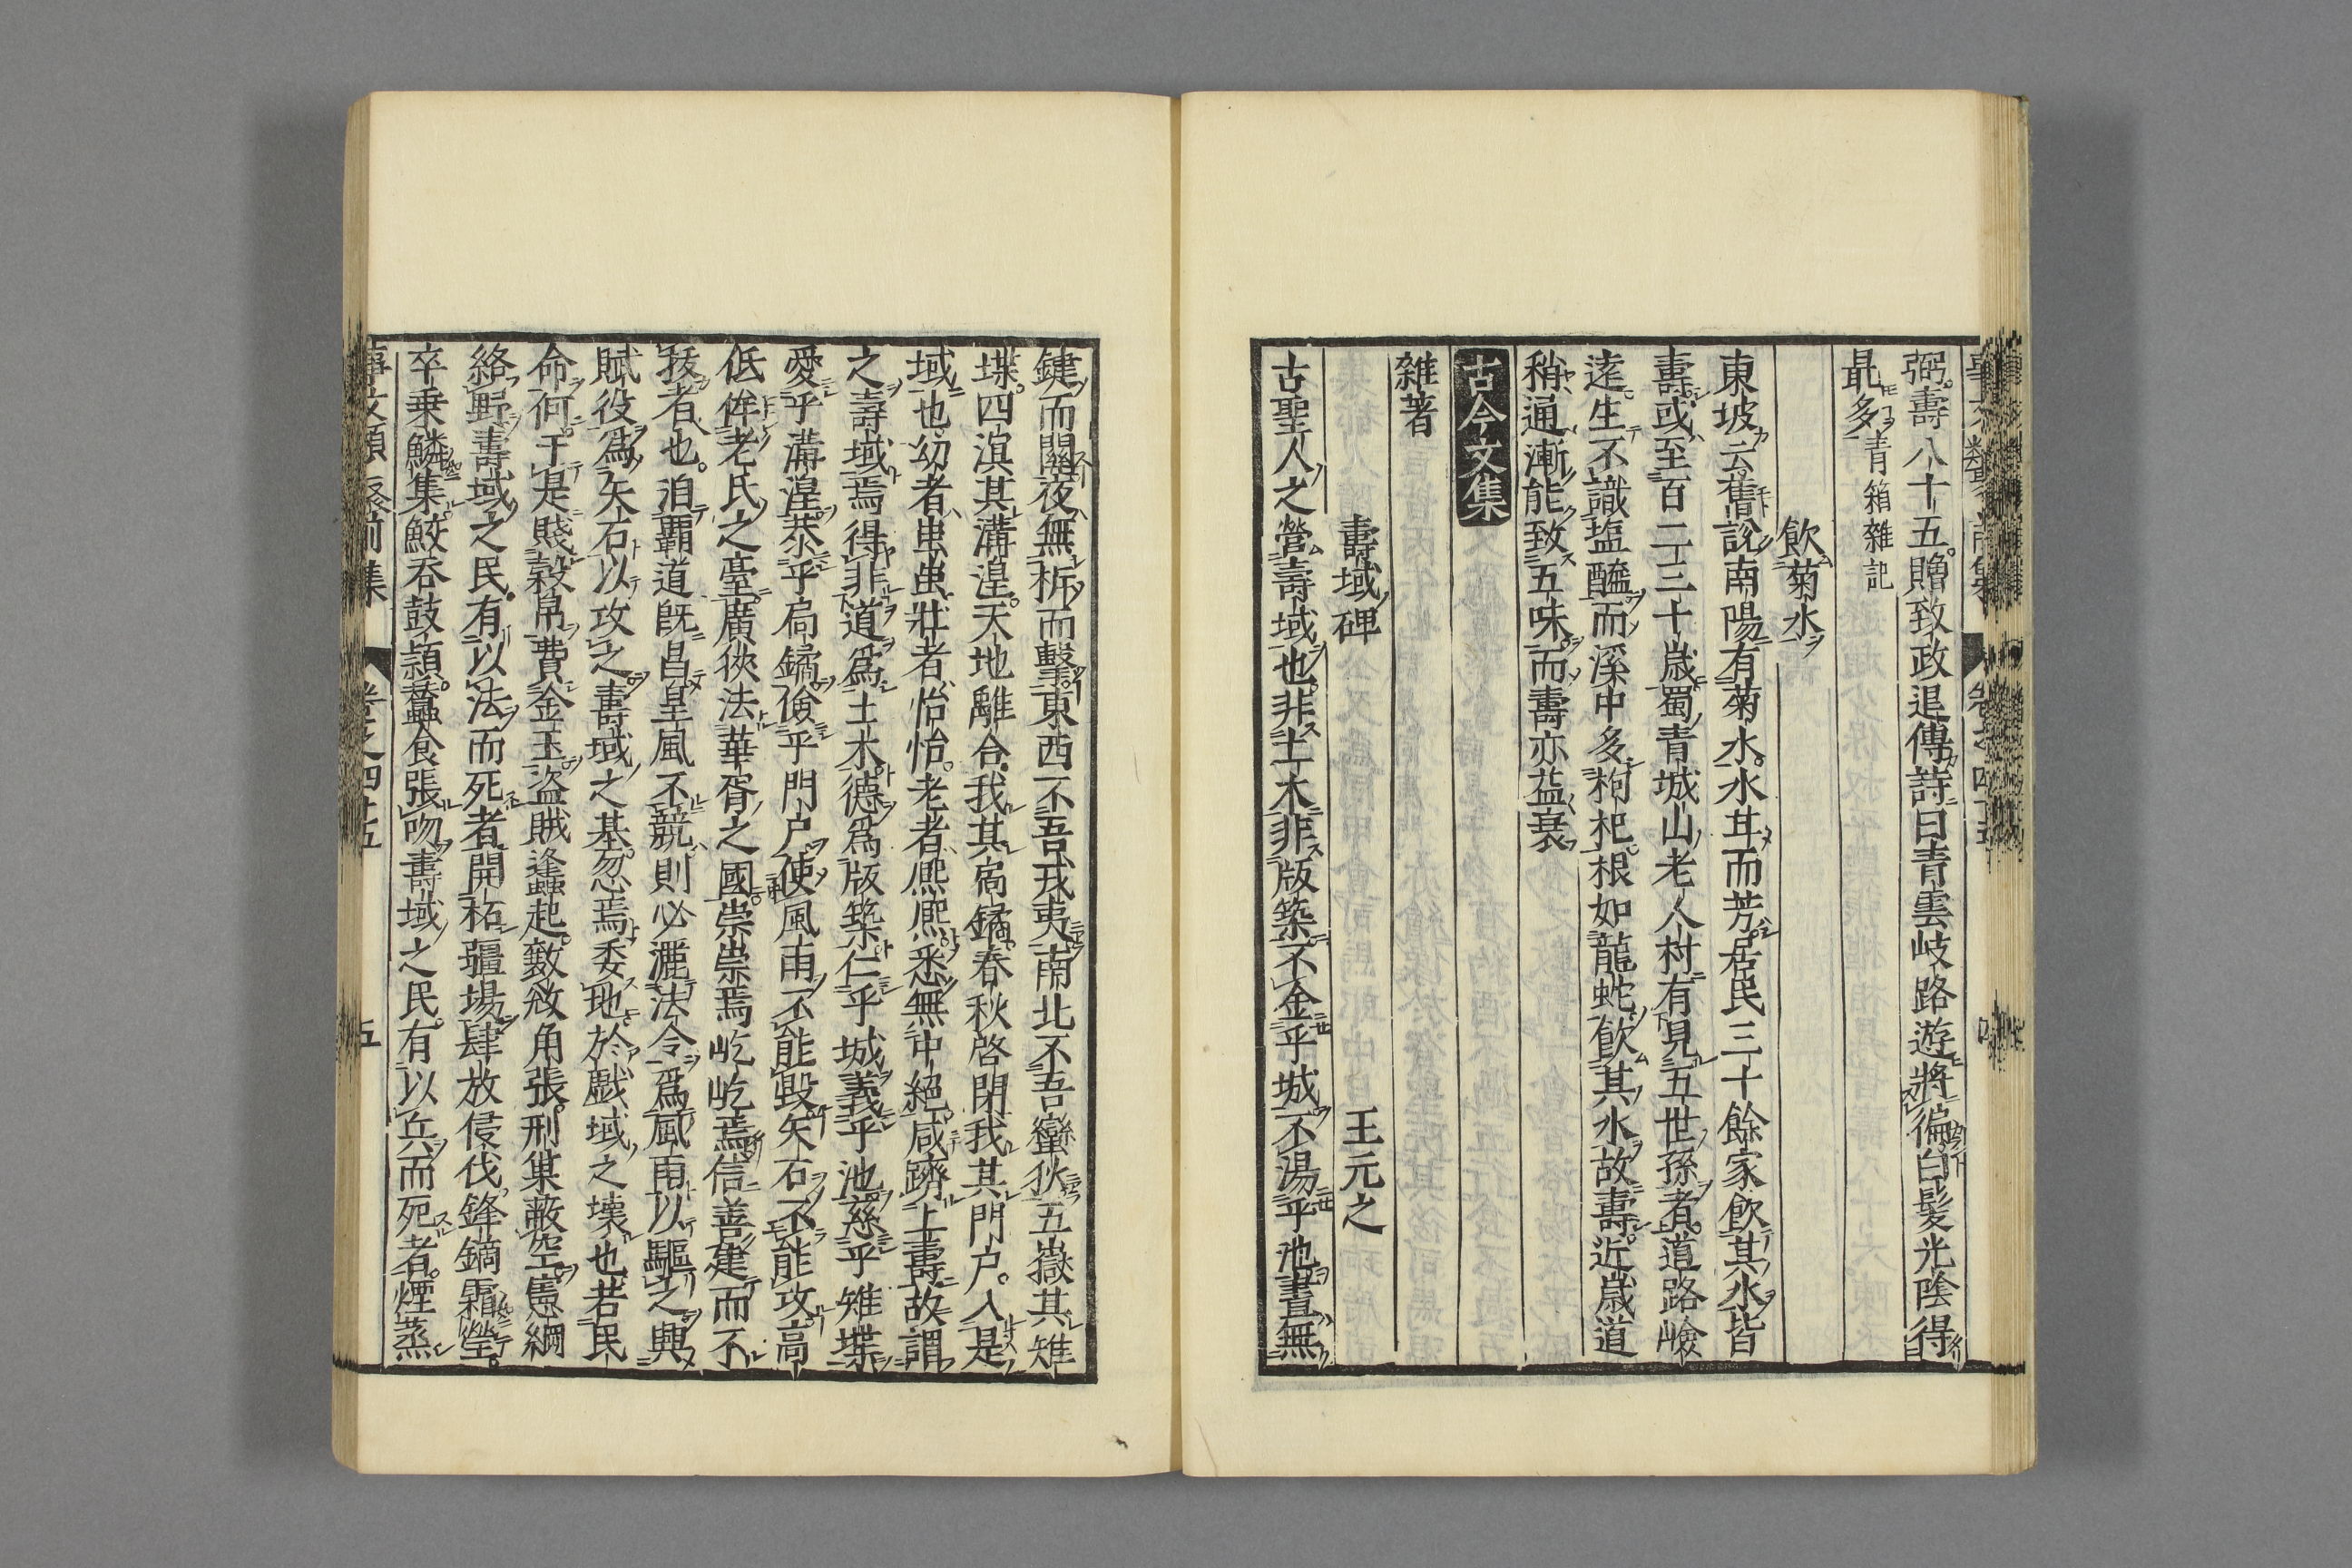 弼壽八十五贈致政退傅詩曰青雲岐路遊將徧白髮光陰得
最多青箱雜記
飲菊水
東坡云舊說南陽有菊水水甘而芳居民三十餘家飲其水皆
壽或至百二三十歲蜀青城山老人村有見五世孫者道路嶮
遠生不識塩醯而溪中多枸杞根如龍蛇飲其水故壽近歲道
稍通漸能致五味而壽亦益衰
古今文集
雜著
壽域碑 王元之
古聖人之營壽域也非土木非版築不金乎城不湯乎池晝無
鍵而關夜無柝而擊東西不吾戎夷南北不吾蠻狄五嶽其雉
堞四溟其溝湟天地離合我其扃鐍春秋啓閉我其門戶入是
域也幼者䖝䖝壯者怡怡老者熈熈悉無中絕咸躋上壽故謂
之壽域焉得非道爲土木德爲版築仁乎城義乎池慈乎雉堞
愛乎溝湟恭乎扃鐍儉乎門户使風雨不能毀矢石不能攻高
低侔老氏之臺廣狹法華胥之國崇崇焉屹屹焉信善建而不
拔者也洎覇道旣昌皇風不競則必灋法令爲風雨以驅之興
賦役爲矢石以攻之壽域之基忽焉委地於戲域之壞也若民
命何于是賤穀帛費金玉盗賊逢蠭起斂怨角張刑菒蔽空憲綱
絡野壽域之民有以法而死者開柘疆場肆放侵伐鋒鏑霜瑩
卒乗鱗集鮫吞鼓頷蠶食張吻壽域之民有以兵而死者煙蒸
事文類聚前集 卷之四十五 五